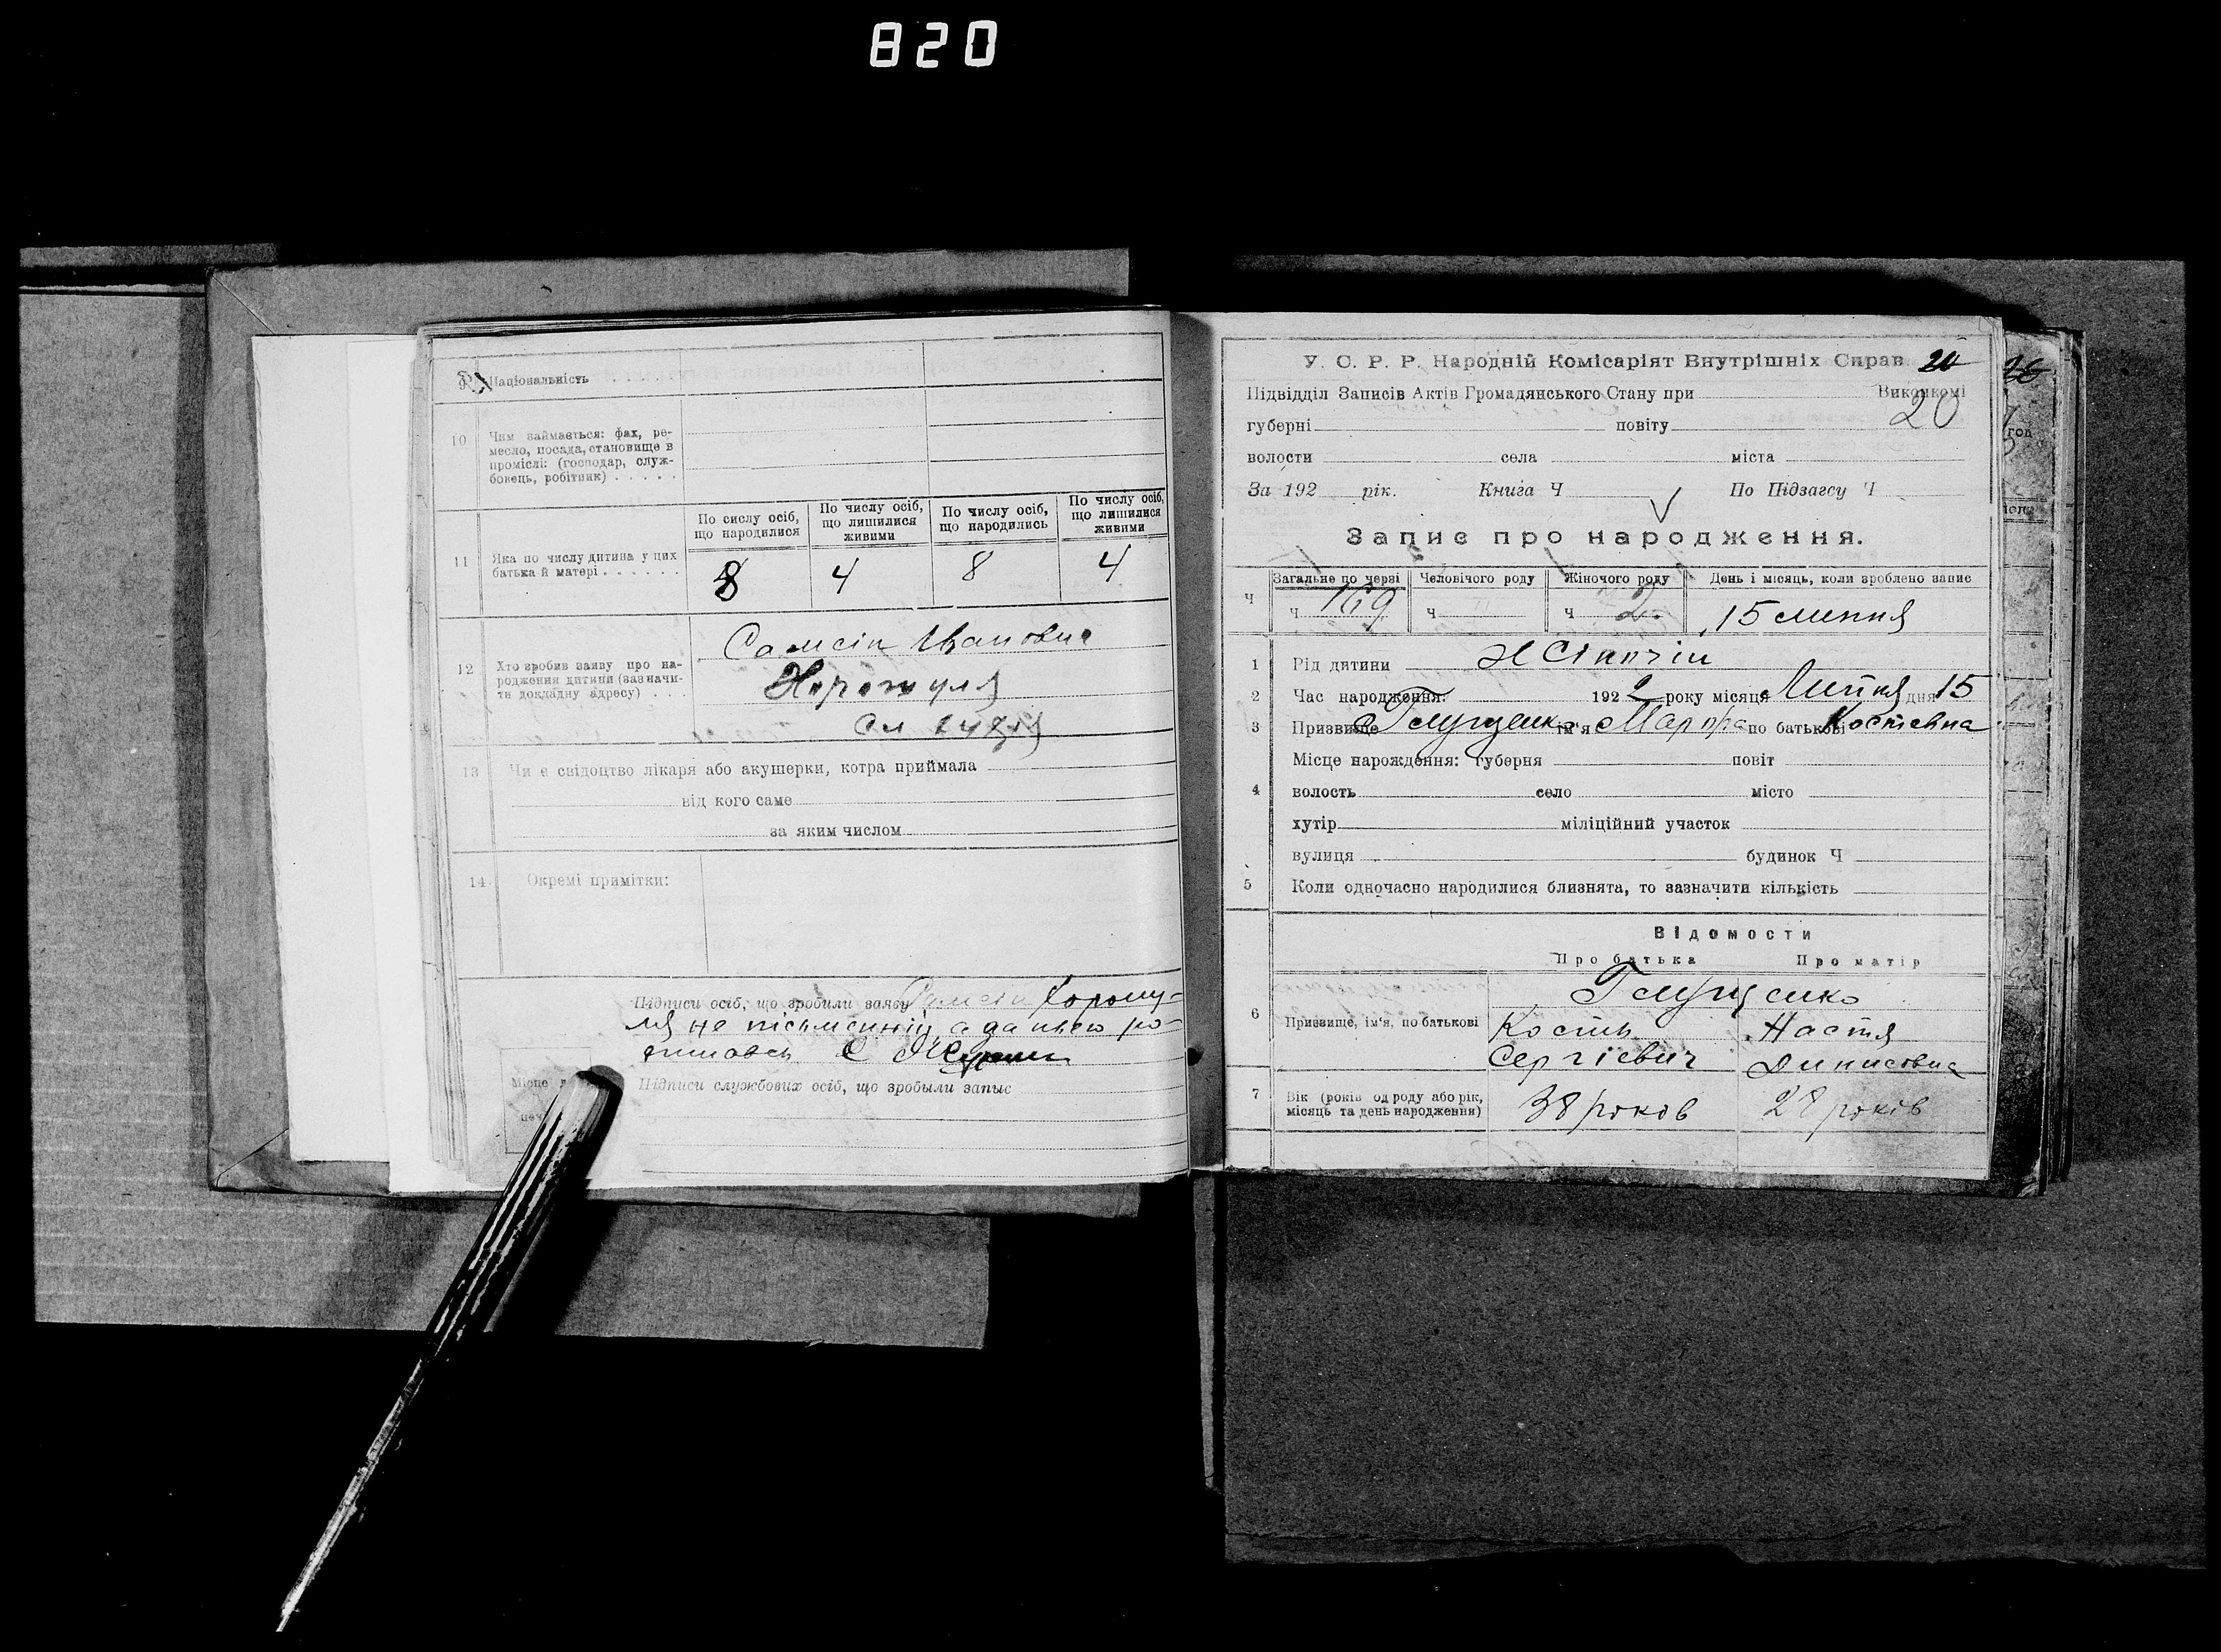 820
9 Національність . . . . .
10 Чим займається: фах, ре-
месло, посада, становище в
промислі: (господар, служ-
бовець, робітник) . . . . .
По сислу осіб, що народилися
По числу осіб, що лишилися живими
По числу осіб, що народились
По числу осіб, що лишилися живими
11 Яка по числу дитина у цих
батька й матері . . . . . .
8 4 8 4
12 Хто зробив заяву про на-
родження дитини (зазначи-
ти докладну адресу) . . .
Самсін Иванович
13 Чи є свідоцтво лікаря або акушерки, котра приймала
від кого саме
за яким числом
14 Окремі примітки:
Підписи осіб, що зробили заяву Самсін Хорошу-
ля не письменній, а за нього ро-
Місце д
печ
Підписи службових осіб, що зробыли запыс
У. С. Р. Р. Народній Комісаріят Внутрішніх Справ.
Підвідділ Записів Актів Громадянського Стану при Виконкомі
20
губерні повіту
волости села міста
За 192 рік. Книга Ч По Підзагсу Ч
Запис про народження.
Загальне по черві Человічого роду Жіночого роду День і місяць, коли зроблено запис
Ч Ч 169 Ч Ч 2 15 липня
1 Рід дитини Жіночій
2 Час народження: 1922 року місяця Липня дня 15
3 Призвище Глущенко ім'я по батькові Костевна
Місце нарождення: губерня повіт
4 волость село місто
хутір міліційний участок
вулиця будинок Ч
5 Коли одночасно народилися близнята, то зазначити кількість
Відомости
Про батька Про матір
Глущенко
6 Призвище, ім'я, по батькові
Кость Настя
Сергієвич Динисовна
7 Вік (років од роду або рік,
місяць та день народження)
38 років 28 років
год